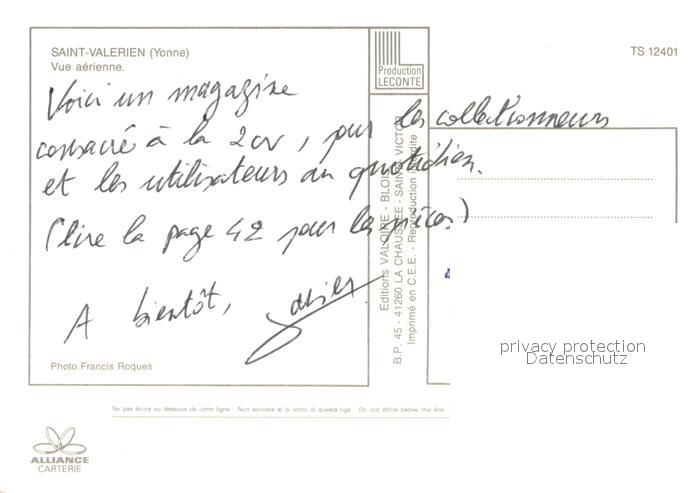 SAINT-VALERIEN (Yonne)
Vue aérienne.
TS 12401
Production
LECONTE
Voici un magazine
consacré à la 2cv, pour les collectionneurs
et les utilisateurs au quotidien.
(lire la page 42 pour les pièces)
A bientôt,
Photo Francis Roques
Editions VALOIRE - BLOIS
B.P. 45 - 41260 LA CHAUSSEE - SAINT-VICTOR
Imprimé en C.E.E. - Reproduction interdite
privacy protection
Datenschutz
Ne pas écrire au dessous de cette ligne - Non scrivere al di sotto di questa riga - Do not Write below this line -
ALLIANCE
CARTERIE